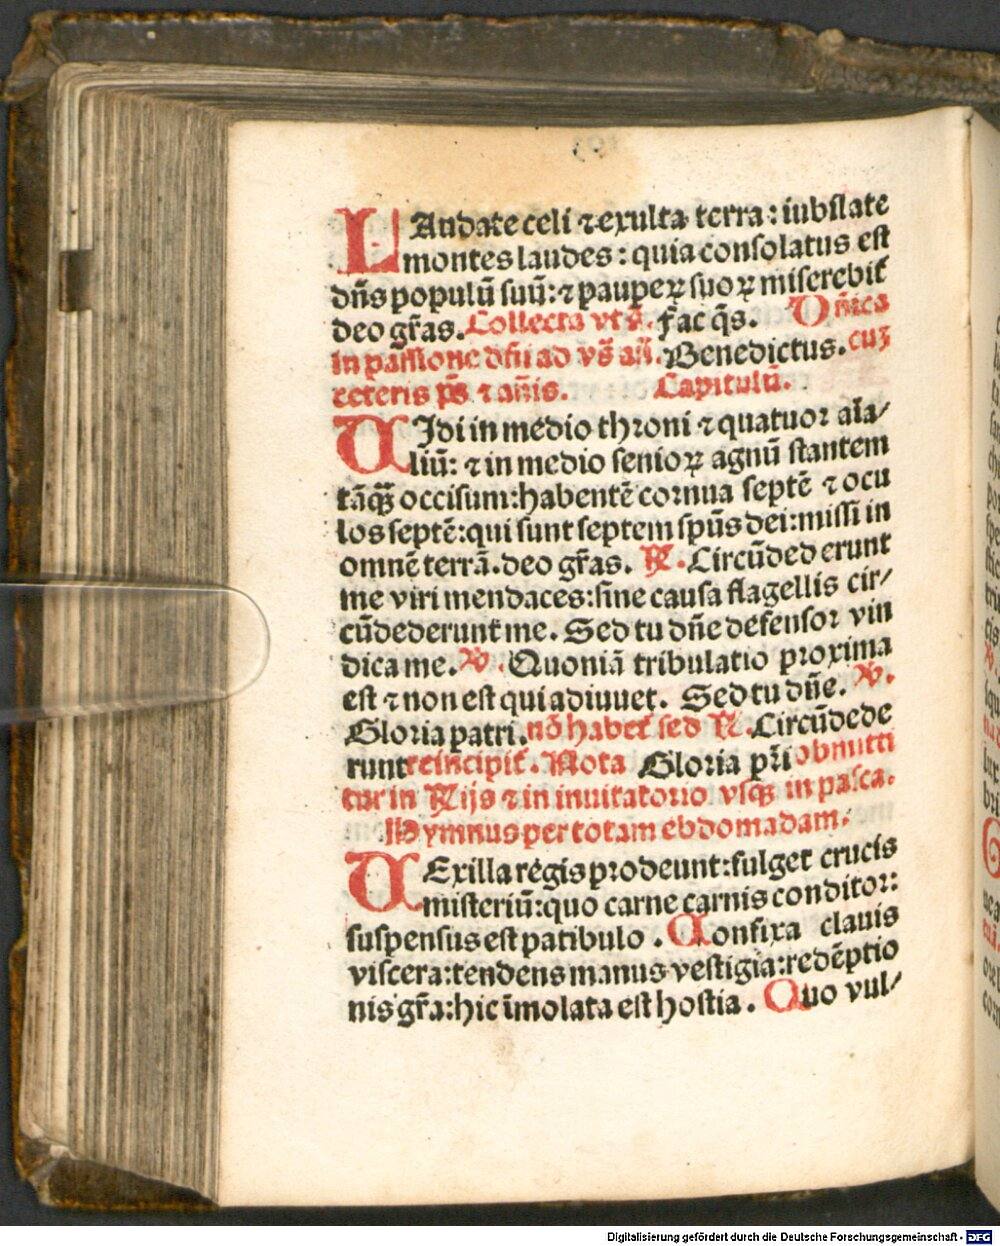 LAudate celi ⁊ exulta terra: iubilate
montes laudes: quia consolatus est
dñs populū suū: ⁊ pauperꝝ suoꝝ miserebit̄
deo gr̄as. Collecta vt sͣ. Fac q̄s. Dn̄ica
in passione dñi ad vs̄ añ. Benedictus. cuꝫ
ceteris ps̄ ⁊ añis. Capitulū.
UIdi in medio throni ⁊ quatuor aĩa/
liū: ⁊ in medio senioꝝ agnū stantem
tāqꝫ occisum: habentē cornua septē ⁊ ocu
los septē: qui sunt septem sp̄us dei: missi in
omnē terrā. deo gr̄as. ℟. Circūdederunt
me viri mendaces: sine causa flagellis cir/
cūdederunt me. Sed tu dñe defensor vin
dica me. ℣. Quoniā tribulatio proxima
est ⁊ non est qui adiuuet. Sed tu dñe. ℣.
Gloria patri. nō habet̄ sed ℟. Circūdede
runt reincipit̄. Nota Gloria pr̄i obmitti
tur in ℟ijs ⁊ in inuitatorio vsqꝫ in pasca.
Hymnus per totam ebdomadam.
UExilla regis prodeunt: fulget crucis
misteriū: quo carne carnis conditor:
suspensus est patibulo. Confixa clauis
viscera: tendens manus vestigia: redēptio
nis gr̄a: hic īmolata est hostia. Quo vul/
Digitalisierung gefördert durch die Deutsche Forschungsgemeinschaft - DFG